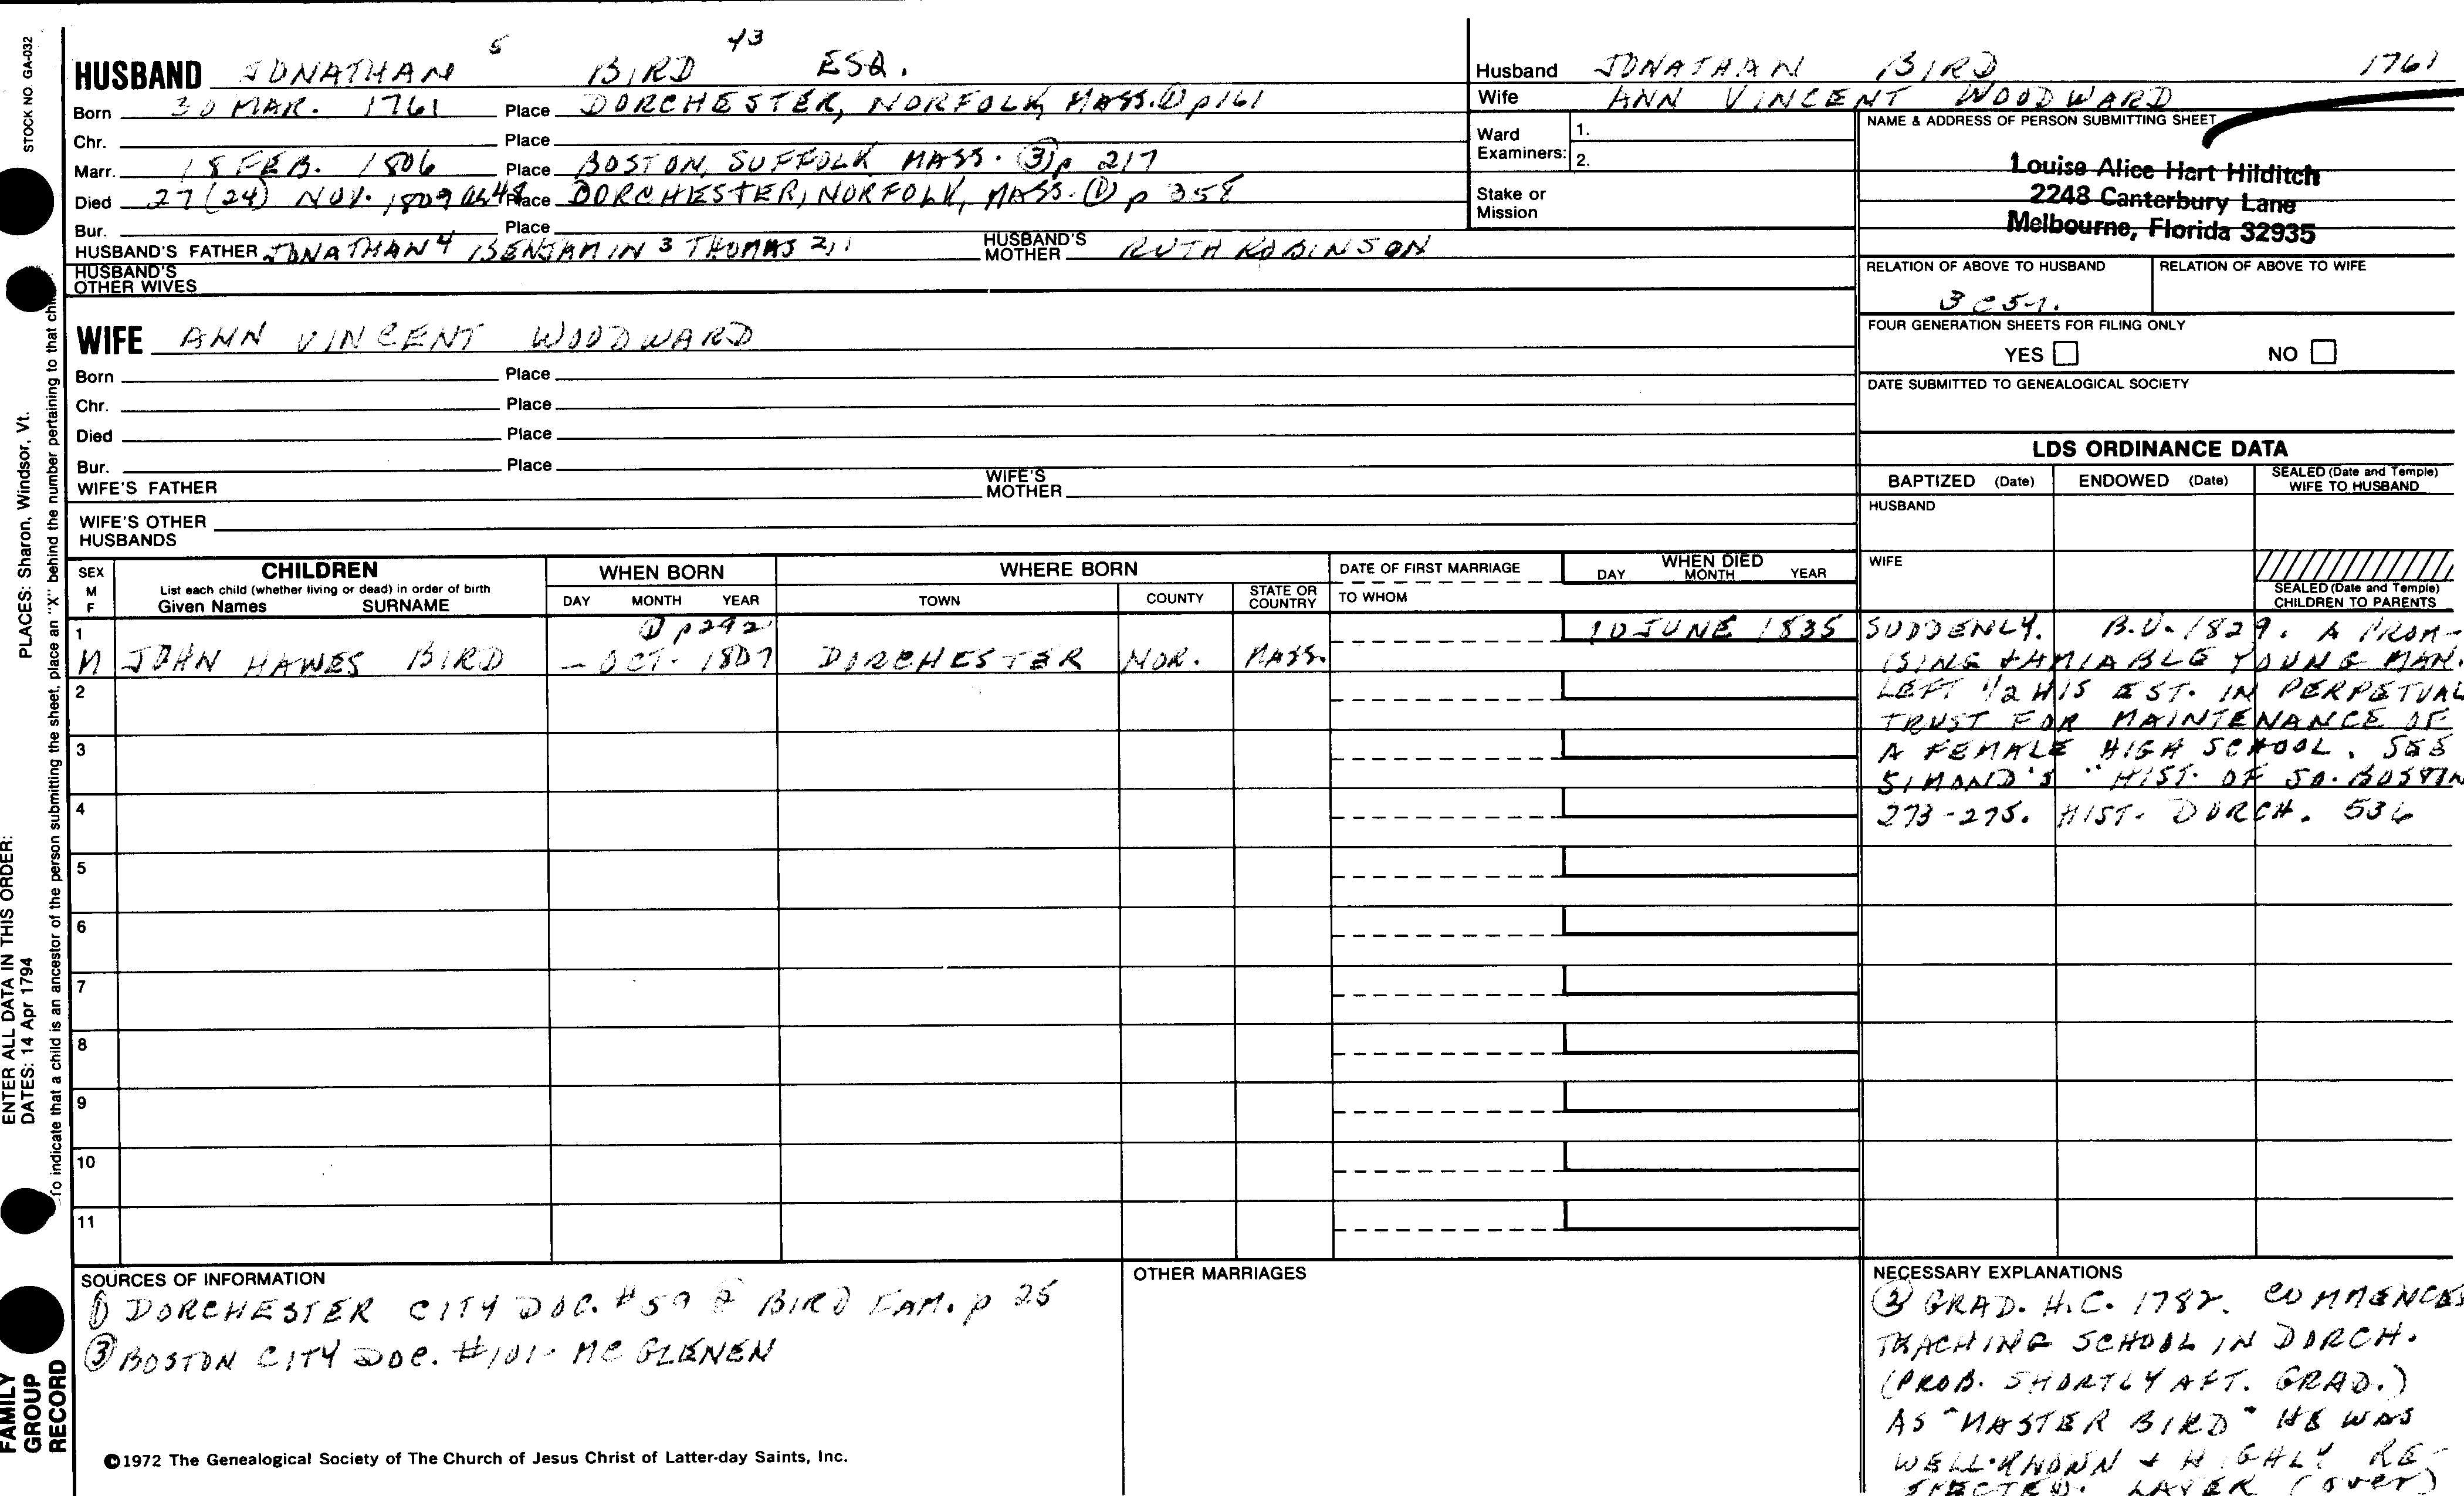 STOCK NO GA-032
5 43
HUSBAND JONATHAN BIRD ESQ.
Born 30 MAR. 1761 Place DORCHESTER, NORFOLK, MASS. ① p161
Chr. Place
Marr. 18 FEB. 1806 Place BOSTON, SUFFOLK MASS. ③ p 217
Died 27 (24) NOV. 1809 Place DORCHESTER, NORFOLK, MASS. ① p 358
Bur. Place
HUSBAND'S FATHER JONATHAN 4 BENJAMIN 3 THOMAS 2,1 HUSBAND'S MOTHER RUTH ROBINSON
HUSBAND'S OTHER WIVES
WIFE ANN VINCENT WOODWARD
Born Place
Chr. Place
Died Place
Bur. Place
WIFE'S FATHER WIFE'S MOTHER
WIFE'S OTHER HUSBANDS
Husband JONATHAN BIRD 1761
Wife ANN VINCENT WOODWARD
Ward Examiners: 1.
2.
Stake or Mission
NAME & ADDRESS OF PERSON SUBMITTING SHEET
Louise Alice Hart Hilditch
2248 Canterbury Lane
Melbourne, Florida 32935
RELATION OF ABOVE TO HUSBAND RELATION OF ABOVE TO WIFE
3 C 5
FOUR GENERATION SHEETS FOR FILING ONLY
YES NO
DATE SUBMITTED TO GENEALOGICAL SOCIETY
LDS ORDINANCE DATA
BAPTIZED (Date) ENDOWED (Date) SEALED (Date and Temple) WIFE TO HUSBAND
HUSBAND
WIFE
SEALED (Date and Temple) CHILDREN TO PARENTS
SEX M F CHILDREN WHEN BORN WHERE BORN DATE OF FIRST MARRIAGE WHEN DIED
List each child (whether living or dead) in order of birth
Given Names SURNAME DAY MONTH YEAR TOWN COUNTY STATE OR COUNTRY TO WHOM DAY MONTH YEAR
1 ① p292 10 JUNE 1835
M JOHN HAWES BIRD — OCT. 1807 DORCHESTER NOR. MASS.
2
3
4
5
6
7
8
9
10
11
SUDDENLY. B.U. 1829. A PROM-
ISING + AMIABLE YOUNG MAN.
LEFT 1/2 HIS EST. IN PERPETUAL
TRUST FOR MAINTENANCE OF
A FEMALE HIGH SCHOOL. SEE
SIMOND'S "HIST. OF SO. BOSTON
273-275. HIST. DORCH. 536
SOURCES OF INFORMATION
① DORCHESTER CITY DOC. #59 ② BIRD FAM. p 25
③ BOSTON CITY DOC. #101- MC GLENEN
OTHER MARRIAGES
NECESSARY EXPLANATIONS
② GRAD. H.C. 1782. COMMENCES
TEACHING SCHOOL IN DORCH.
(PROB. SHORTLY AFT. GRAD.)
AS "MASTER BIRD" HE WAS
WELL-KNOWN + HIGHLY RE-
SPECTED. LATER (over)
©1972 The Genealogical Society of The Church of Jesus Christ of Latter-day Saints, Inc.
PLACES: Sharon, Windsor, Vt.
ENTER ALL DATA IN THIS ORDER:
DATES: 14 Apr 1794
To indicate that a child is an ancestor of the person submitting the sheet, place an "X" behind the number pertaining to that
FAMILY
GROUP
RECORD